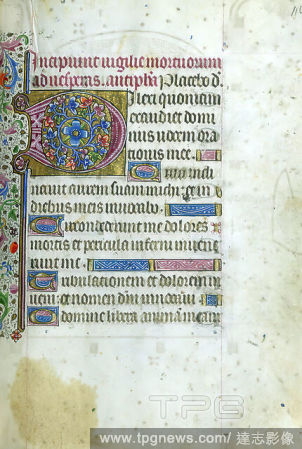 Incipiunt vigilie mortuorum
ad vesperas. antipha Placebo d.
Dilexi quoniam
exaudiet domi
nus vocem ora
tionis mee.
Quia incli
navit aurem suam michi et in
diebus meis invocabo.
Circundederunt me dolores
mortis et pericula inferni invene
runt me.
Tribulationem et dolorem in
veni et nomen dni invocavi
O domine libera animam meam
TPG
www.tpgnews.com/ 達志影像